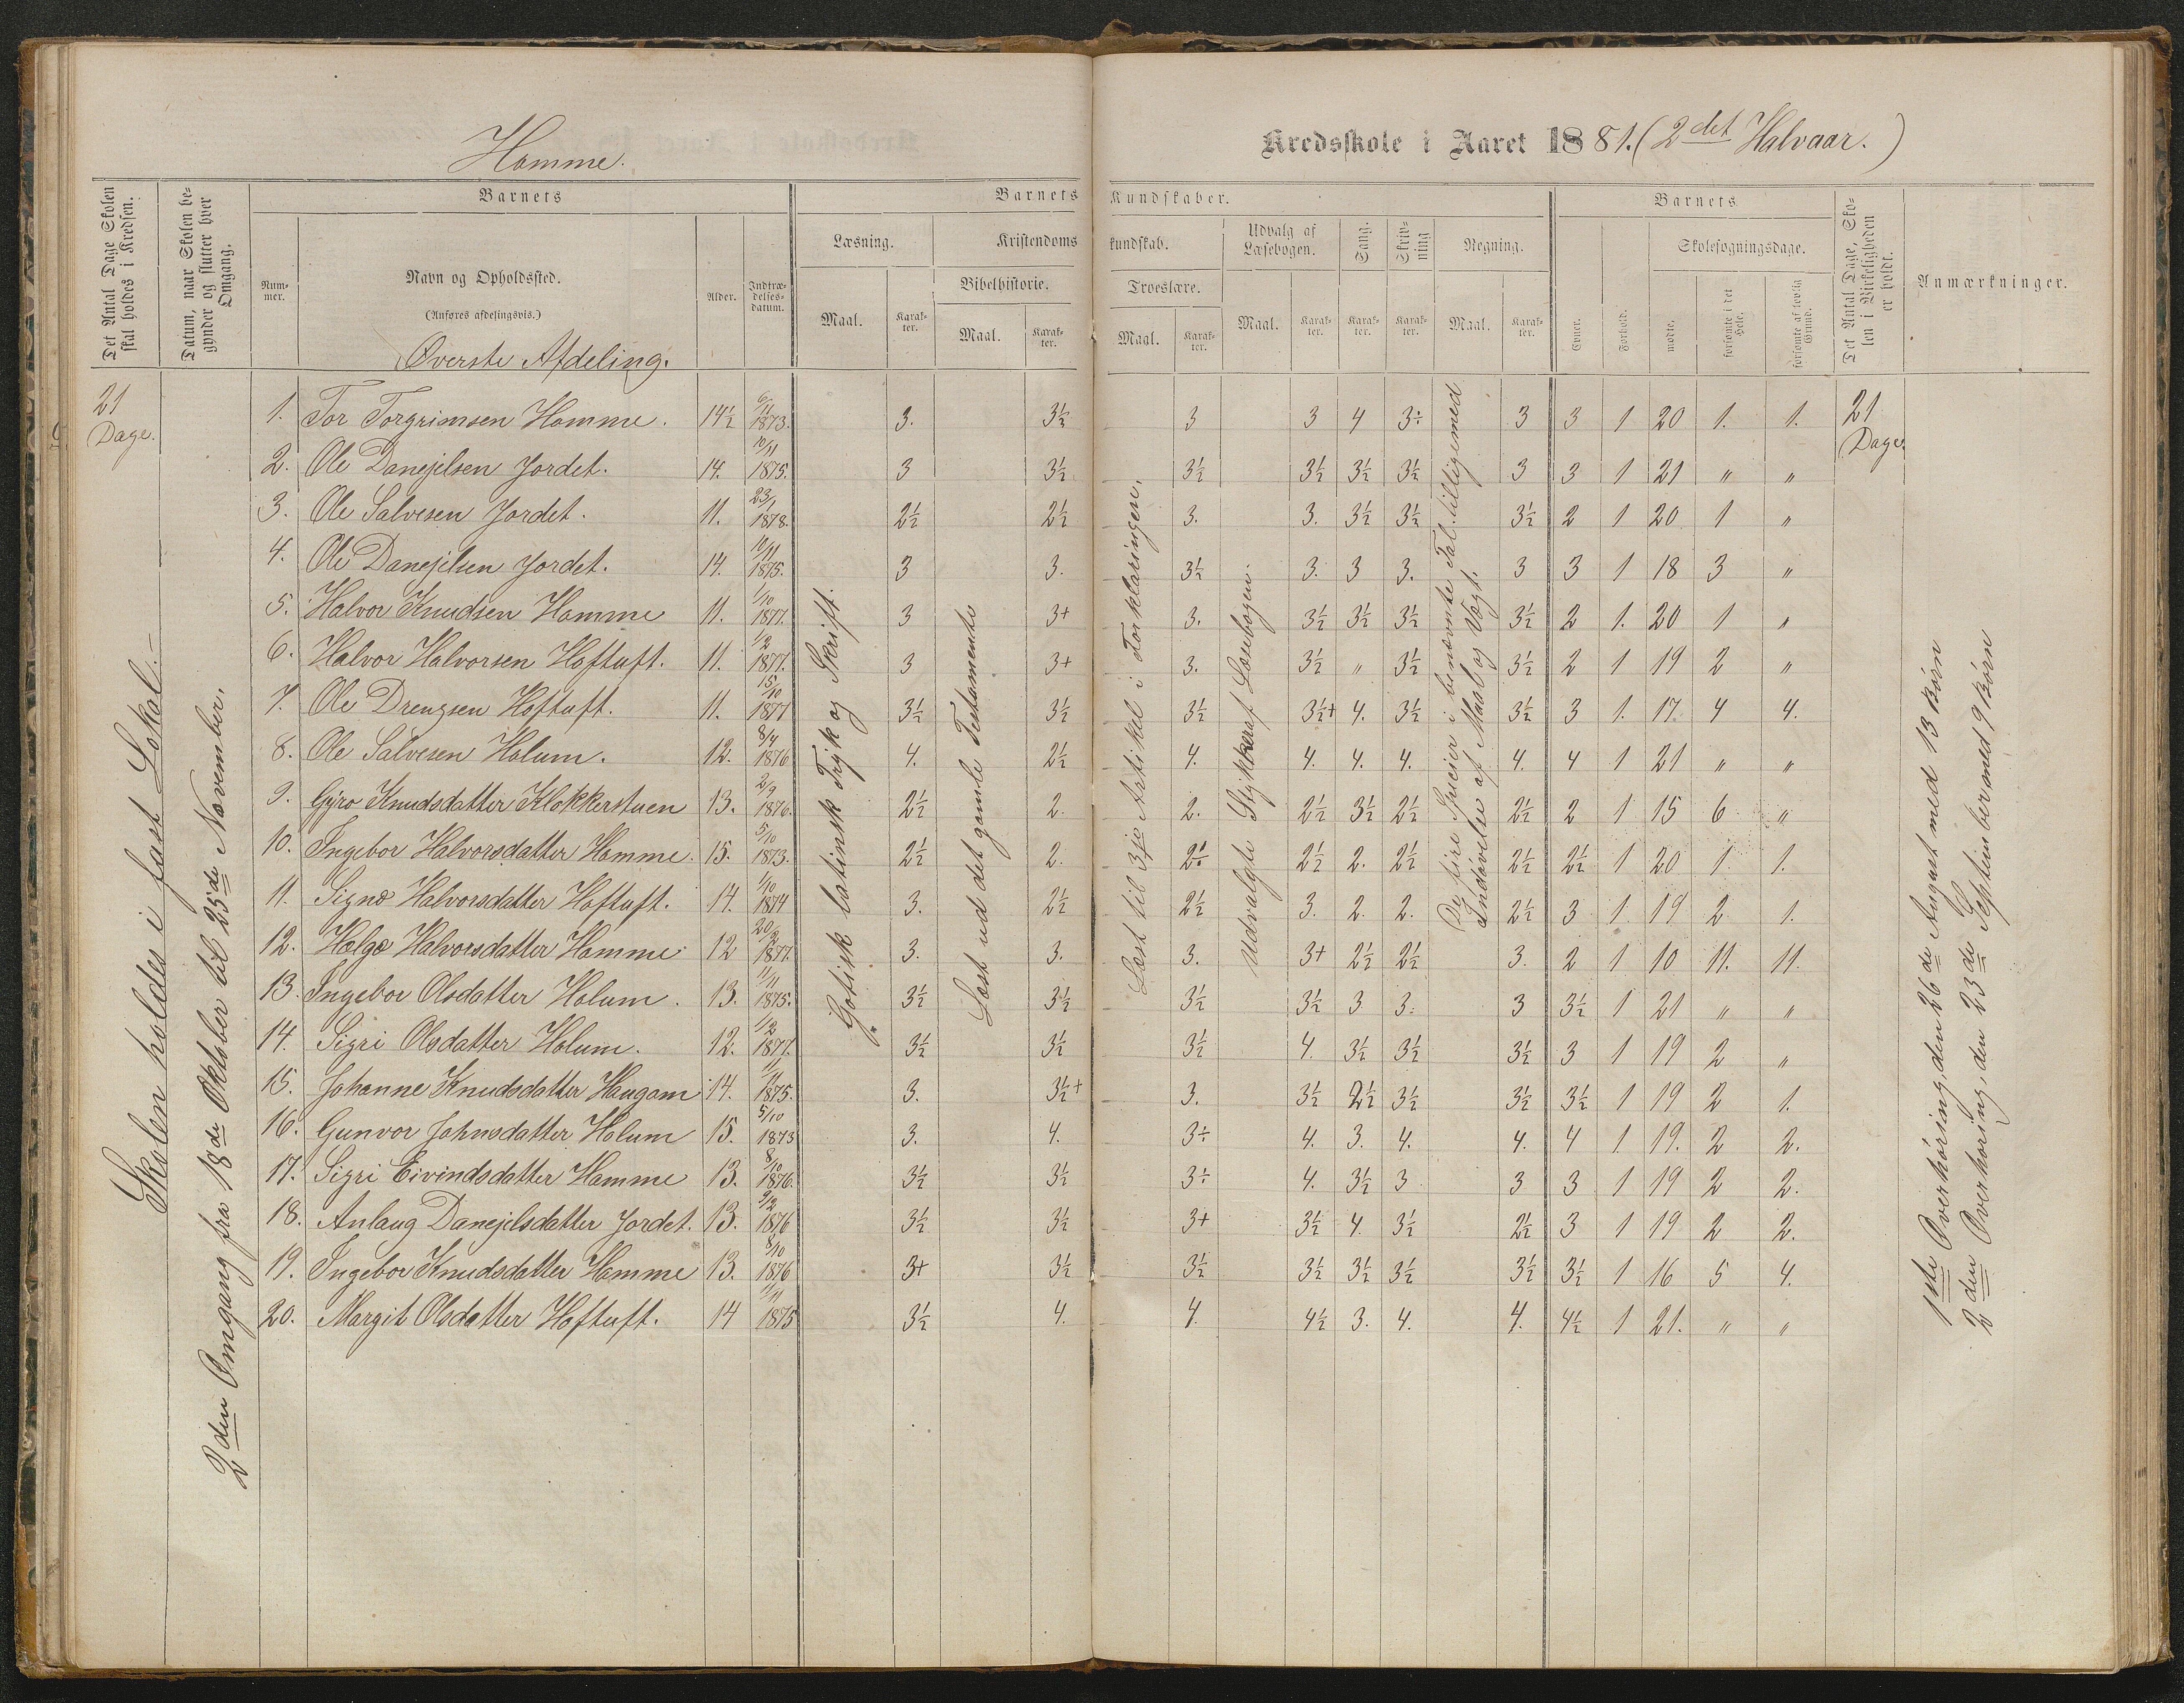 Homme.
Kredsskole i Aaret 1881. (2det Halvaar.)
Det Antal Dage Skolen skal holdes i Kredsen.
Datum, naar Skolen begynder og slutter hver Omgang.
Barnets
Nummer.
Navn og Opholdssted.
(Anføres afdelingsvis.)
Alder.
Indtrædelsesdatum.
Barnets Kundskaber.
Læsning.
Maal.
Karakter.
Kristendomskundskab.
Bibelhistorie.
Maal.
Karakter.
Troeslære.
Maal.
Karakter.
Udvalg af Læsebogen.
Maal.
Karakter.
Sang.
Karakter.
Skrivning
Karakter.
Regning.
Maal.
Karakter.
Barnets
Evner.
Forhold.
Skolesøgningsdage.
mødte.
forsømte i det Hele.
forsømte af lovlig Grund.
Det Antal Dage, Skolen i Virkeligheden er holdt.
Anmærkninger.
Øverste Afdeling.
21 Dage.
Skolen holdes i fast Lokal.
2den Omgang fra 18de Oktober til 25de November.
Gotisk latinsk Tryk og Skrift.
Læst ud det gamle Testamente
Læst til 3die Artikel i Forklaringen.
Udvalgte Stykker af Læsebogen.
De fire Specier i benævnte Tal tilligemed
Indøvelse af Maal og Vægt.
1. Tor Torgrimsen Homme. 14½ 6/11 1873. 3. 3½ 3 3 4 3÷ 3 3 1 20 1. 1. 21 Dage
2. Ole Danejelsen Jordet. 14. 10/11 1875. 3 3½ 3½ 3½ 3½ 3½ 3 3 1 21 " "
3. Ole Salvesen Jordet. 11. 23/1 1878. 2½ 2½ 3. 3. 3½ 3½ 3½ 2 1 20 1 "
4. Ole Danejelsen Jordet. 14. 10/11 1875. 3 3. 3½ 3. 3 3. 3 3 1 18 3 "
5. Halvor Knudsen Homme 11. 1/10 1877. 3 3+ 3. 3½ 3½ 3½ 3½ 2 1. 20 1 "
6. Halvor Halvorsen Hoftuft. 11. 1/2 1877. 3 3+ 3. 3½ " 3½ 3½ 2 1 19 2 "
7. Ole Drengsen Hoftuft. 11. 15/10 1877 3½ 3½ 3½ 3½+ 4. 3½ 3½ 3 1. 17. 4 4.
8. Ole Salvesen Holum. 12. 8/4 1876 4. 2½ 4. 4. 4. 4. 4. 4 1 21 " "
9. Gyro Knudsdatter Klokkerstuen 13. 2/9 1876. 2½ 2. 2. 2½ 3½ 2½ 2½ 2 1 15 6 "
10. Ingebor Halvorsdatter Homme. 15. 5/10 1873. 2½ 2. 2½ 2. 2½ 2½ 2½ 1 20 1 1.
11. Signe Halvorsdatter Hoftuft. 14. 1/10 1874 3. 2½ 2½ 3. 2. 2. 2½ 3 1. 19 2 1.
12. Helge Halvorsdatter Homme 12 20/2 1877. 3. 3. 3. 3+ 2½ 2½ 3. 2 1 10 11. 11.
13. Ingebor Olsdatter Holum. 13. 11/11 1875. 3½ 3½ 3½ 3½ 3 3. 3 3½ 1 21 " "
14. Sigri Olsdatter Holum. 12. 1/2 1877. 3½ 3½ 3½ 4. 3½ 3½ 3½ 3 1 19 2 "
15. Johanne Knudsdatter Haugom 14. 11/11 1875. 3. 3½+ 3. 3½ 2½ 3½ 3½ 3½ 1 19 2 1.
16. Gunvor Johnsdatter Holum 15. 5/10 1873 3. 4. 3÷ 4. 3. 4. 4. 4 1. 19. 2 2.
17. Sigri Eivindsdatter Homme 13. 8/10 1876. 3½ 3½ 3÷ 4. 3½ 3 3 3 1 19 2 2.
18. Anlaug Danejelsdatter Jordet. 13. 9/2 1876 3½ 3½ 3+ 3½ 4. 3½ 2½ 3 1 19 2 2.
19. Ingebor Knudsdatter Homme 13. 8/10 1876 3+ 3½ 3½ 3½ 3½ 3½ 3½ 3½ 1 16 5 4.
20. Margit Olsdatter Hoftuft. 14 11/11 1875 3½ 4. 4. 4½ 3. 4. 4. 4½ 1 21. " "
1ste Overhøring, den 26de August med 13 Børn
2den Overhøring, den 23de September med 9 Børn